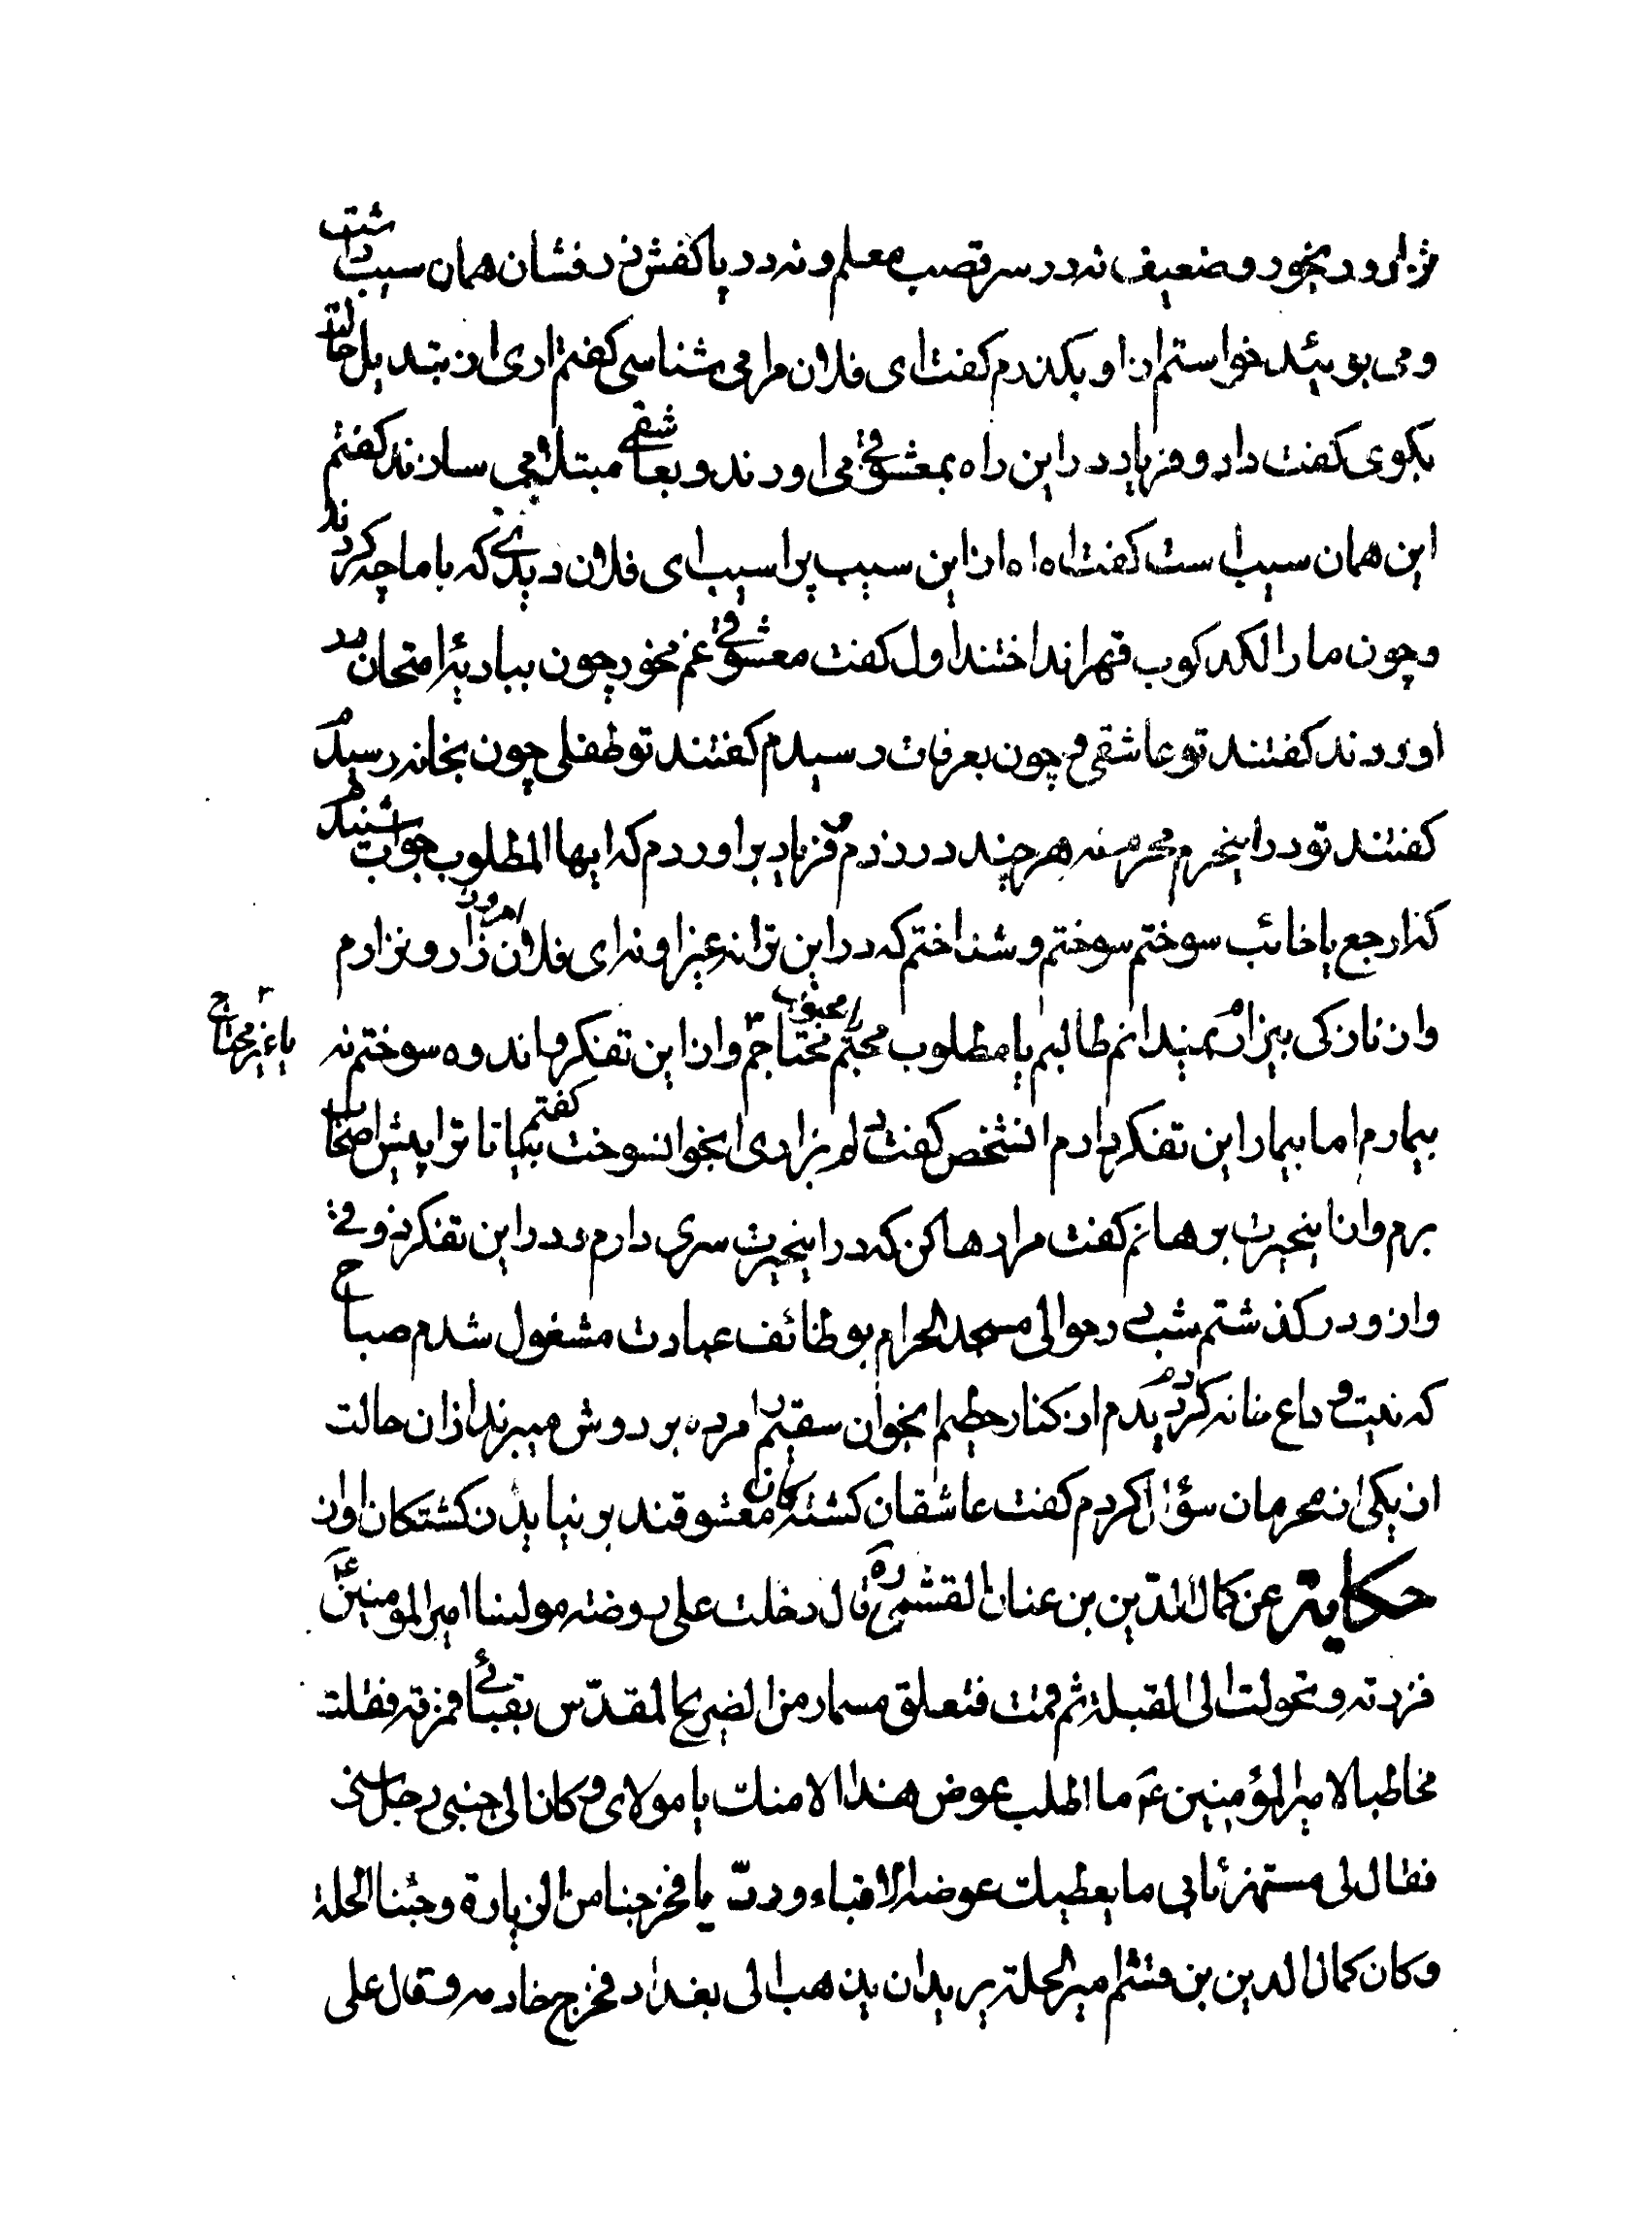 نزار و رنجور و ضعیف نه در سر قصب معلم و نه در پا کفش زرفشان همان سیب داشت
و می بوئید خواستم از او بگذرم گفت ای فلان مرا می شناسی گفتم اری از تبدیل حالت
بگوی گفت داد و فریاد در این راه بمعشوقی می اورند و بعاشقی مبتلا می سازند گفتم
این همان سیب است گفت اه اه از این سیب پر اسیب ای فلان دیدی که با ما چه کردند
و چون ما را لکد کوب قهر انداختند اول گفت معشوقی غم مخور چون ببادیهٔ امتحان در
اوردند گفتند تو عاشقی و چون بعرفات رسیدم گفتند تو طفلی چون بخانه رسیدم
گفتند تو در اینحرم محرم نه هر چند در زدم و فریاد براوردم که ایها المطلوب جواب شنیدم
که ارجع یا خائب سوختم سوختم و شناختم که در این ترانه غیر او نه ای فلان امروز زار و نزارم
و از نازکی بیزارم نمیدانم طالبم یا مطلوب محبم یا محبوب محتاجم و از این تفکر و اندوه سوختم نه
یا غیر محتاج
بیمارم اما بیمار این تفکر دارم انشخص گفت دلم بزاری انجوان سوخت گفتم بیا تا ترا پیش اصحاب
برم و از اینحیرت برهانم گفت مرا رها کن که در اینحیرت سری دارم و در این تفکر ذوقی
و از او درگذشتم شبی در حوالی مسجد الحرام بوظائف عبادت مشغول شدم صباح
که نیت وداع خانه کردم دیدم از کنار حطیم انجوان سقیم را مرده بر دوش میبرند از ان حالت
از یکی از محرمان سؤال کردم گفت عاشقان کشتگان معشوقند بر نیاید ز کشتکان اواز
حکایة عن کمال الدّین بن عنان القشمی ره قال دخلت علی روضة مولینا امیر المومنین ع
فزرته و تحولت الی القبلة ثم قمت فتعلق مسمار من الضریح المقدّس بقبائی فمزقه فقلت
مخاطبا لامیر المؤمنین ع ما اطلب عوض هذا الا منک یا مولای و کان الی جنبی رجل سنی
فقال لی مستهزئا بی ما یعطیک عوضه الا قباء وردّیا فخرجنا من الزیارة و جئنا الحلة
و کان کمال الدین بن قشتم امیر الحلة یرید ان یذهب الی بغداد فخرج خادمه و قال علی